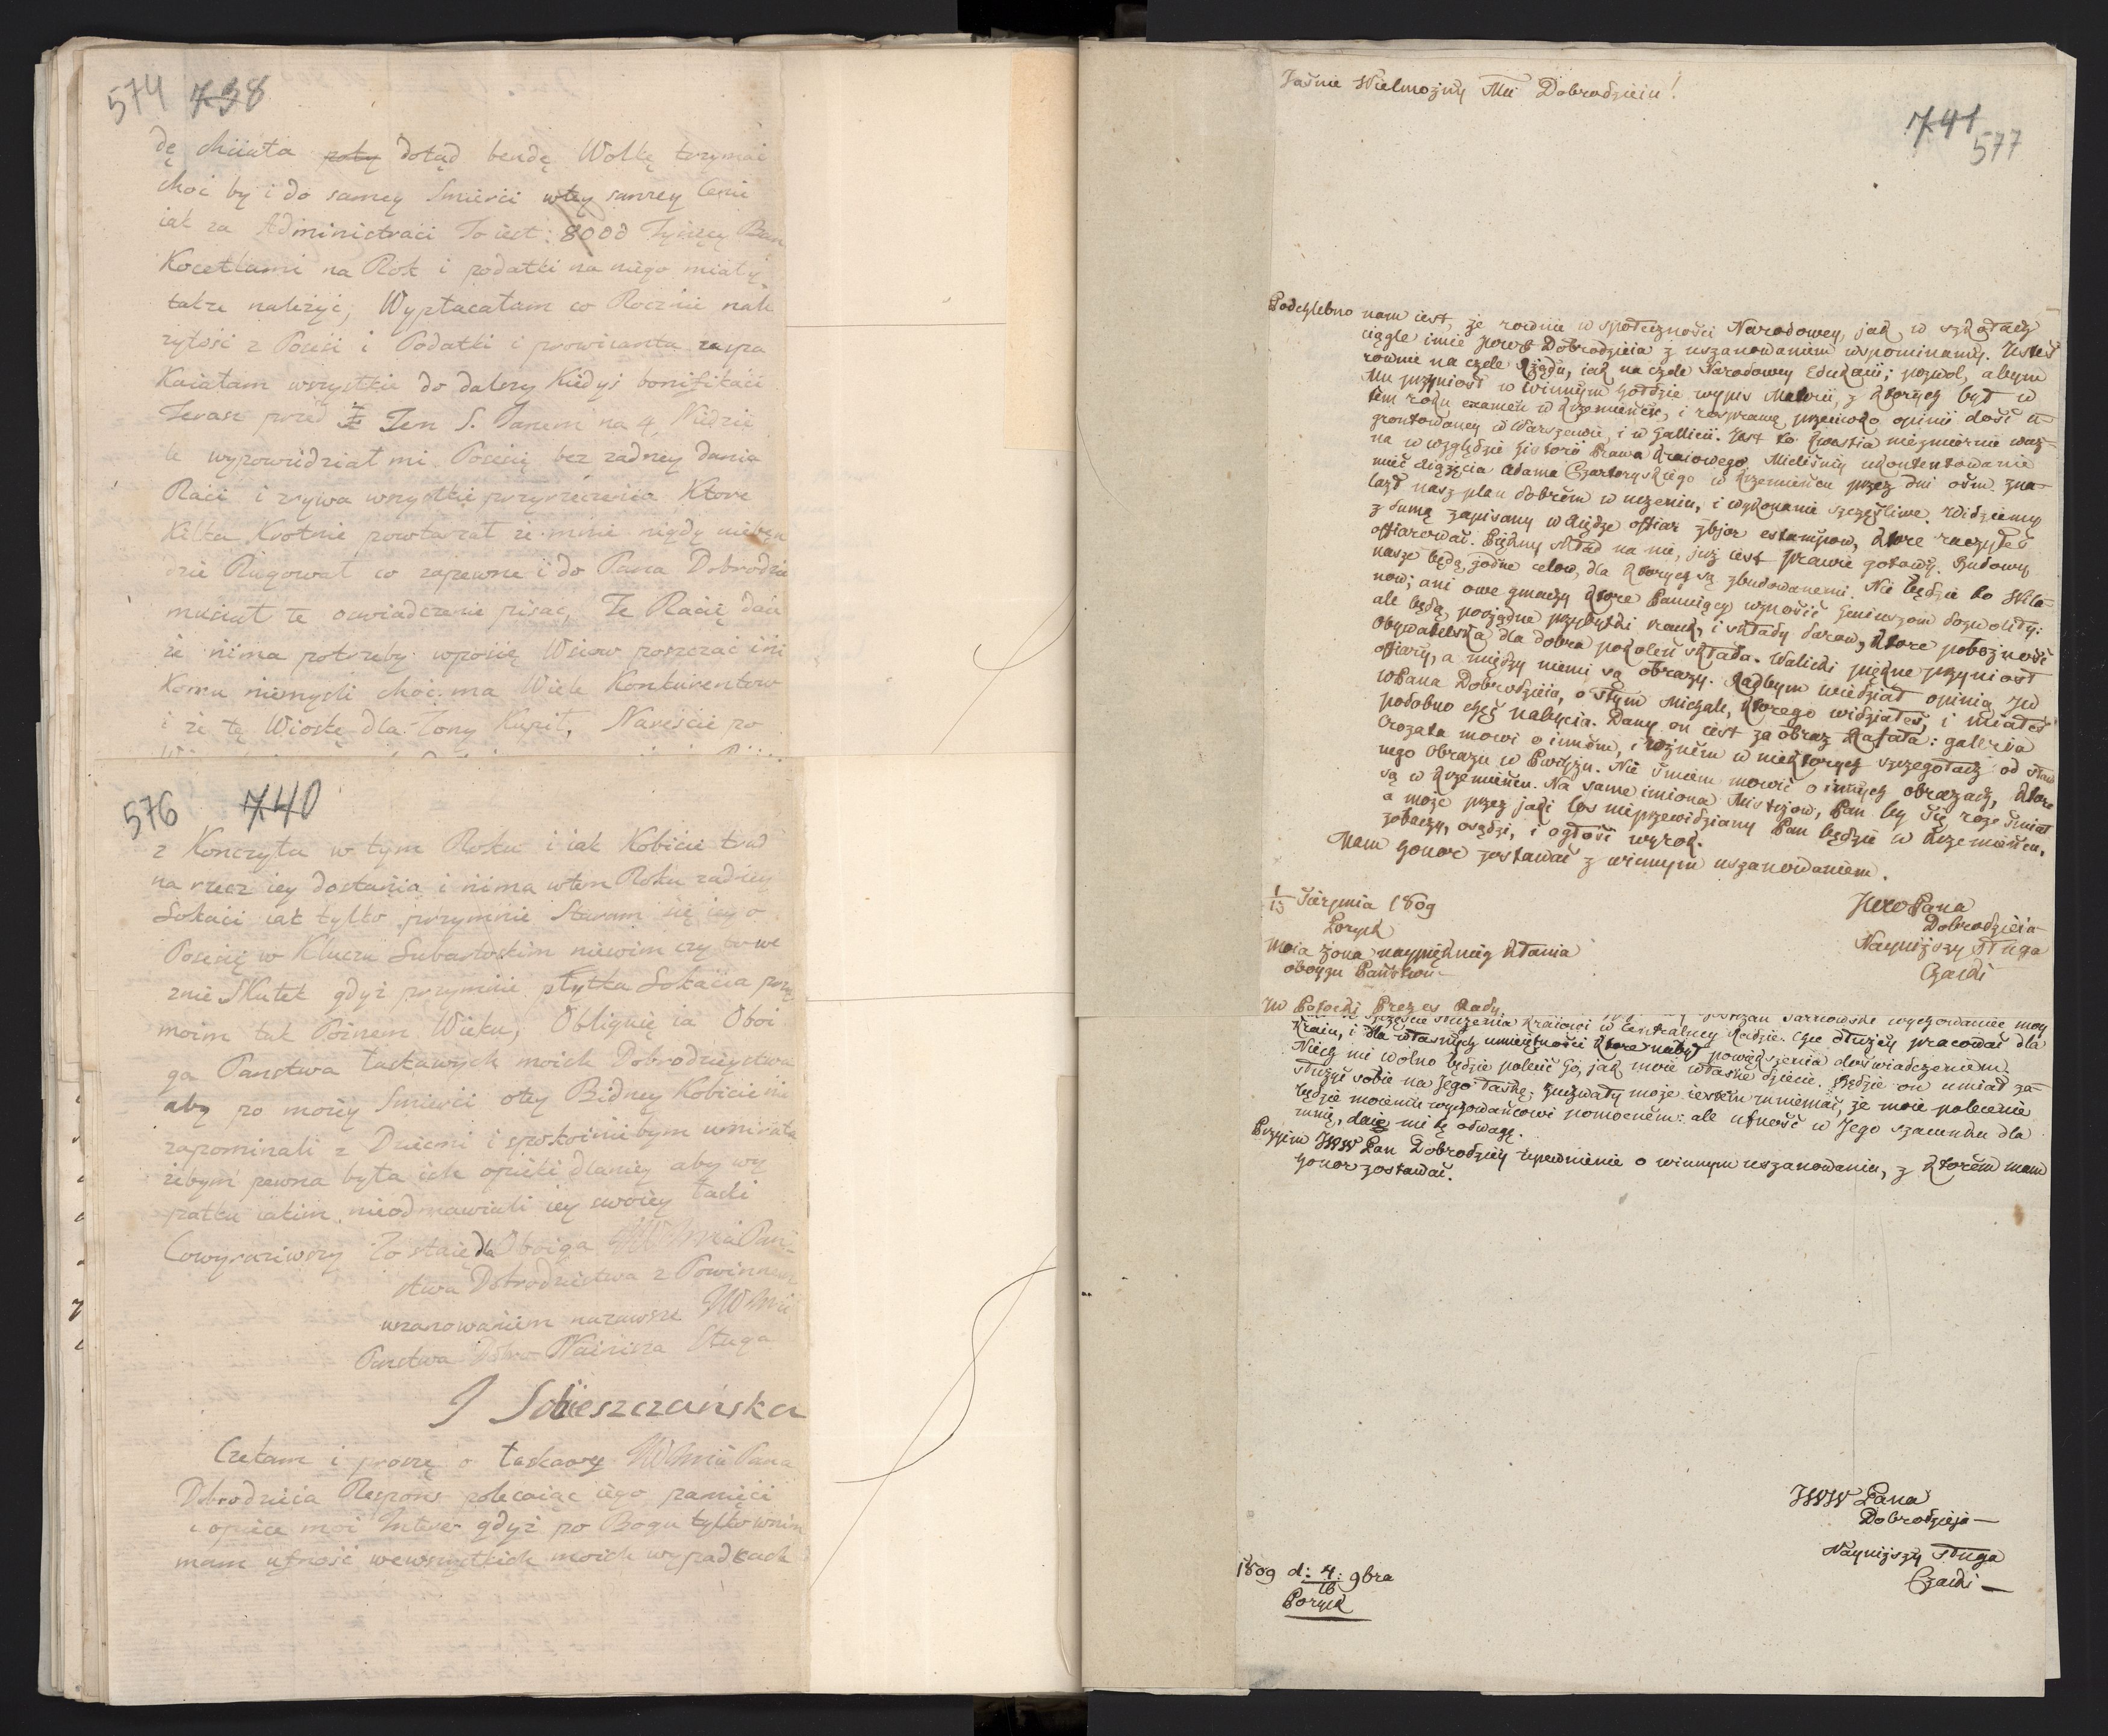 574 738
dę chciała poty dotąd bendę Wolkę trzymać
choć by i do samey Smierci wtey samzey Cenie
iak za Administraci To iest: 8000 Tysięcy Ban
Kocetlami na Rok i podatki na niego miały
takze należyć, Wypłacałam co Rocznie nale
zytość z Posesi i Podatki i prowianta zaspa
Kaiałam wszystkie do dalszy Kiedyś bonifikaci
Teraz przed Ten S. Janem na 4 Niedzie
le wypowiedział mi Posesię bez zadney dania
Raci i zrywa wszystkie przyrzeczenia Ktore
Kilka Krotnie powtarzał że mnie nigdy niebęn
dzie Rugował co zapewne i do Pana Dobrodzie
musiał te oswiadczenie pisać, Te Racię daie
że nima potrzeby wposię Wsiow poszczać i ni
Komu niemysli choć ma Wiele Konkurentow
i że tę Wioskę dla Zony Kupił, Nareście po
576 740
z Konczyła w tym Roku i iak Kobicie trud
na rzecz iey dostania i nima wtem Roku zadney
Lokaci iak tylko przymnie Staram się iey o
Posesię w Kluczu Lubartoskim niewim czy to we
znie Skutek gdyż przymnie płytka Lokacia przy
moim tak Poznem Wieku, Obliguię ia Oboi
ga Panstwa łaskawych moich Dobrodzieystwa
aby po moiey Smierci otey Bidney Kobicie nie
zapominali z Dziecmi i spokoinie bym umirała
żebym pewna była ich opieki dlaniey aby wy
patku iakim nieodmawiali iey swoiey łaski
Cowyraziwszy Zostaię dla Oboiga WW Pan-
stwa Dobrodzieystwa z Powinnem
uszanowaniem nazawsze
Panstwa Dobro Nainisza Sługa
J Sobieszczańska
Czekam i proszę o łaskawy Pana
Dobrodzieia Respons polecaiąc iego pamięci
i opiece moi Interes gdyż po Bogu tylko wnim
mam ufność wewszytkich moich wypadkach
Jaśnie Wielmożny Mci Dobrodzieiu!
741
577
Podchlebno nam iest, że rownie w społeczności Narodowey, jak w szkołach
ciągle imie JWWP Dobrodzieia z uszanowaniem wspominamy. Jesteś
rownie na czele Rządu, iak na czele Narodowey Edukacii; pozwol, abym
Mu przyniosł w winnym hołdzie wypis Materii, z ktorych był w
tem roku examen w Krzemieńcu, i rosprawę przeciwko opinii dość u-
grontowaney w Warszawie, i w Gallicii. Jest to kwestia niezmiernie waż-
na w względzie historii Prawa kraiowego. Mieliśmy ukontentowanie
mieć Xiążęcia Adama Czartoryskiego w Krzemieńcu przez dni ośm. Zna-
lazł nasz plan dobrem w uczeniu, i wykonanie szczęśliwe. Widziemy
z dumą zapisany w księdze offiar zbior estampow, ktore raczyłeś
offiarować. Piękny skład na nie, już iest prawie gotowy. Budowy
nasze będą godne celow, dla ktorych są zbudowanemi. Nie będzie to Skla-
now; ani owe gmachy ktore Panuiący wznosić Geniuszom dozwolity:
ale będą porządne przybytki nauk, i składy darow, ktore pobożność
Obywatelska dla dobra pokoleń składa. Walicki piękne przyniosł
offiary, a między niemi są obrazy. Radbym wiedział opinią JW
WPana Dobrodzieia, o Stym Michale, ktorego widziałeś, i miałeś
podobno chęć nabycia. Dany on iest za obraz Rafała: galleria
Crozata mowi o innem, i rożnem w niektorych szczegołach od sław
nego Obrazu w Paryżu. Nie śmiem mowić o innych obrazach, ktore
są w Krzemieńcu. Na same imiona Mistrzow, Pan by się roześmiał
a może przez jaki los nieprzewidziany Pan będzie w Krzemieńcu,
zobaczy, osądzi, i ogłosi wyrok.
Mam honor zostawać z winnym uszanowaniem.
1/13 Sierpnia 1809
Poryck
JWWPana
Dobrodzieia
Nayniższy Sługa
Czacki
Moia żona naypiękniey kłania
oboygu Państwu
JW Potocki Prezes Rady
szczęście służenia Kraiowi w Centralney Radzie. Chce dłużey pracować dla
Kraiu, i dla własnych umieiętności ktore nabył powiększenia doświadczeniem.
Niech mi wolno będzie polecić Go, jak moie własne dziecie. Będzie on umiał za-
służyć sobie na Jego łaskę; zuchwały może iestem mniemać, że moie polecenie
będzie moiemu wychowańcowi pomocnem: ale ufność w Jego szacunku dla
mnię, daię mi tę odwagę.
Przyim JWW Pan Dobrodziey upewnienie o winnym uszanowaniu, z ktorem mam
honor zostawać.
JWW Pana
Dobrodzieja
Nayniższy Sługa
Czacki
1809 d: 4/16: 9bra
Poryck